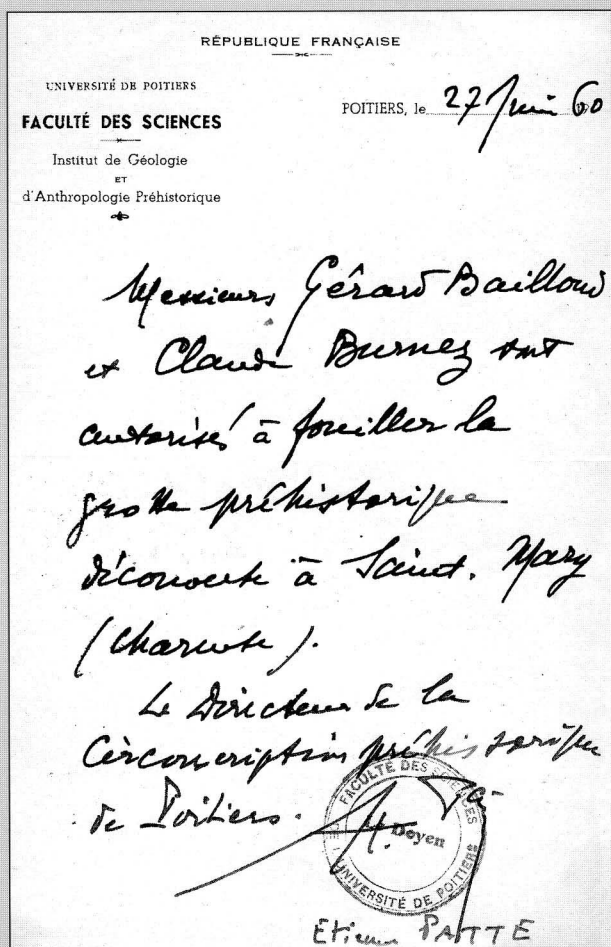 RÉPUBLIQUE FRANÇAISE
UNIVERSITÉ DE POITIERS
FACULTÉ DES SCIENCES
Institut de Géologie
ET
d'Anthropologie Préhistorique
POITIERS, le 27 Juin 60
Messieurs Gérard Bailloud
et Claude Burnez sont
autorisés à fouiller la
grotte préhistorique
découverte à Saint. Mary
(Charente).
Le Directeur de la
Circonscription préhistorique
de Poitiers.
FACULTÉ DES SCIENCES
Doyen
UNIVERSITÉ DE POITIERS
Etienne PATTE